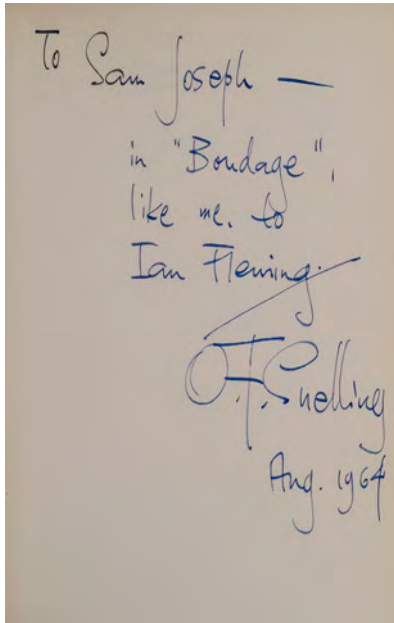 To Sam Joseph —
in "Bondage",
like me, to
Ian Fleming.
O.F. Snelling
Aug. 1964